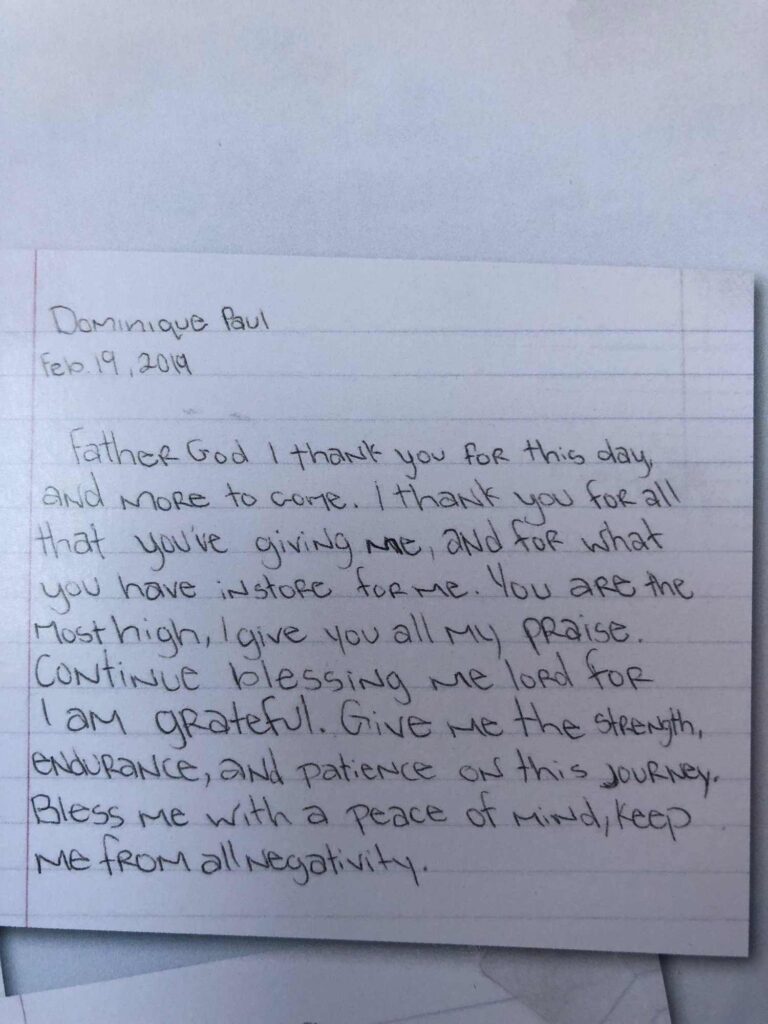 Dominique Paul
Feb. 19, 2019
Father God I thank you for this day,
and more to come. I thank you for all
that you've giving me, and for what
you have instore for me. You are the
Most high, I give you all my praise.
Continue blessing me lord for
I am grateful. Give me the strength,
endurance, and patience on this journey.
Bless me with a peace of mind, keep
me from all negativity.